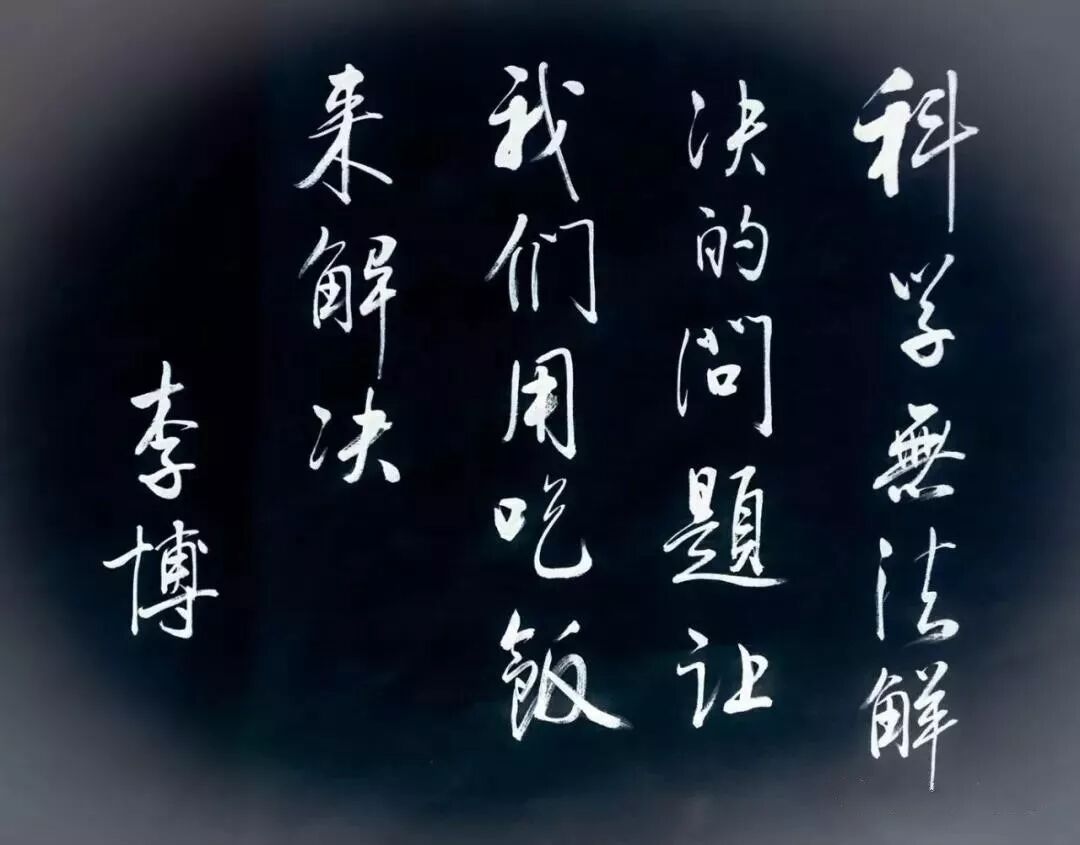 科学無法解
决的问題让
我们用吃飯
来解决
李博